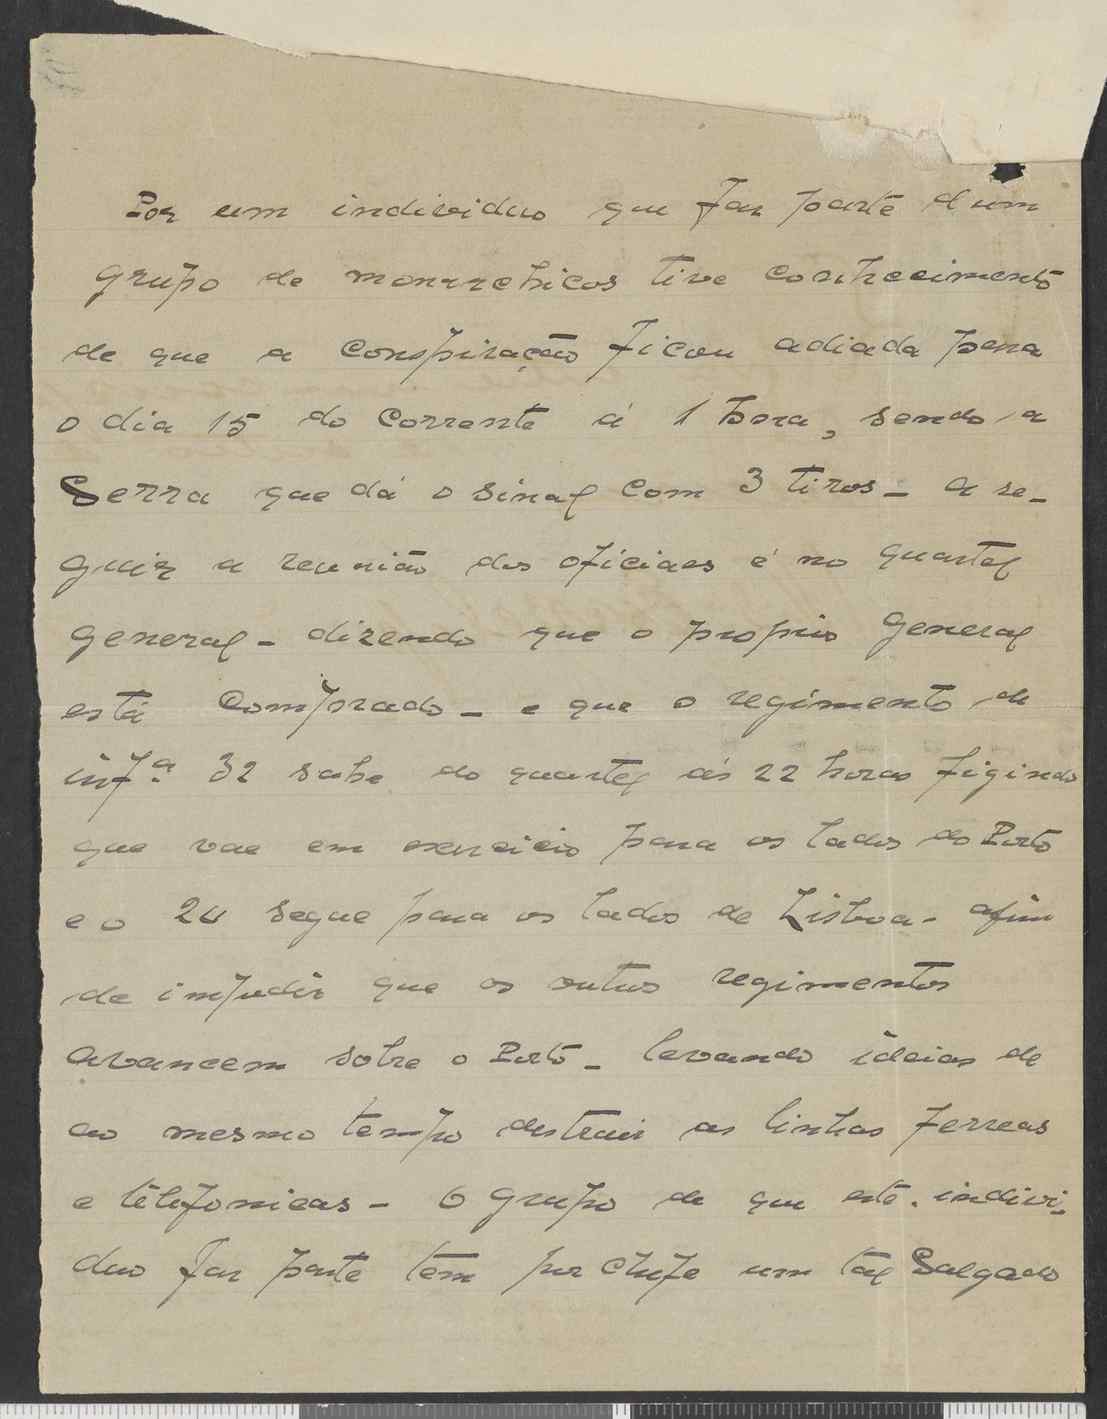 Por um individuo que faz parte d'um
grupo de monarchicos tive conhecimento
de que a conspiração ficou adiada para
o dia 15 do corrente á 1 hora, sendo a
Serra que dá o sinal com 3 tiros - a se-
guir a reunião dos oficiaes é no quartel
general - dizendo que o proprio General
está comprado - e que o regimento de
infª 32 sahe do quartel ás 22 horas figindo
que vae em exercicio para os lados do Porto
e o 24 segue para os lados de Lisboa - afim
de impedir que os outros regimentos
avancem sobre o Porto - levando ideias de
ao mesmo tempo destruir as linhas ferreas
e telefonicas - O grupo de que este indivi-
duo faz parte tem por chefe um tal Salgado